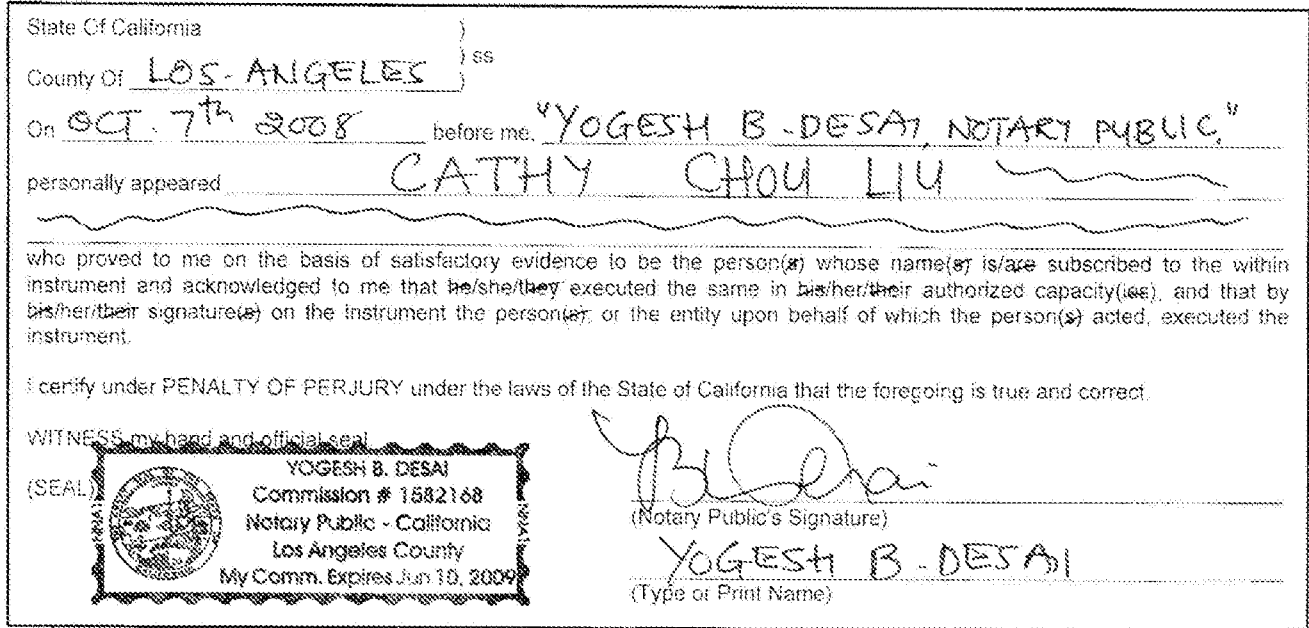 State Of California }
} ss
County Of LOS-ANGELES }
On OCT. 7th 2008 before me, "YOGESH B-DESAI, NOTARY PUBLIC,"
personally appeared CATHY CHOU LIU
who proved to me on the basis of satisfactory evidence to be the person(s) whose name(s) is/are subscribed to the within
instrument and acknowledged to me that he/she/they executed the same in his/her/their authorized capacity(ies), and that by
his/her/their signature(s) on the instrument the person(s), or the entity upon behalf of which the person(s) acted, executed the
instrument.
I certify under PENALTY OF PERJURY under the laws of the State of California that the foregoing is true and correct.
WITNESS my hand and official seal
(SEAL)
YOGESH B. DESAI
Commission # 1582168
Notary Public - California
Los Angeles County
My Comm. Expires Jun 10, 2009
YB Desai
(Notary Public's Signature)
YOGESH B-DESAI
(Type or Print Name)